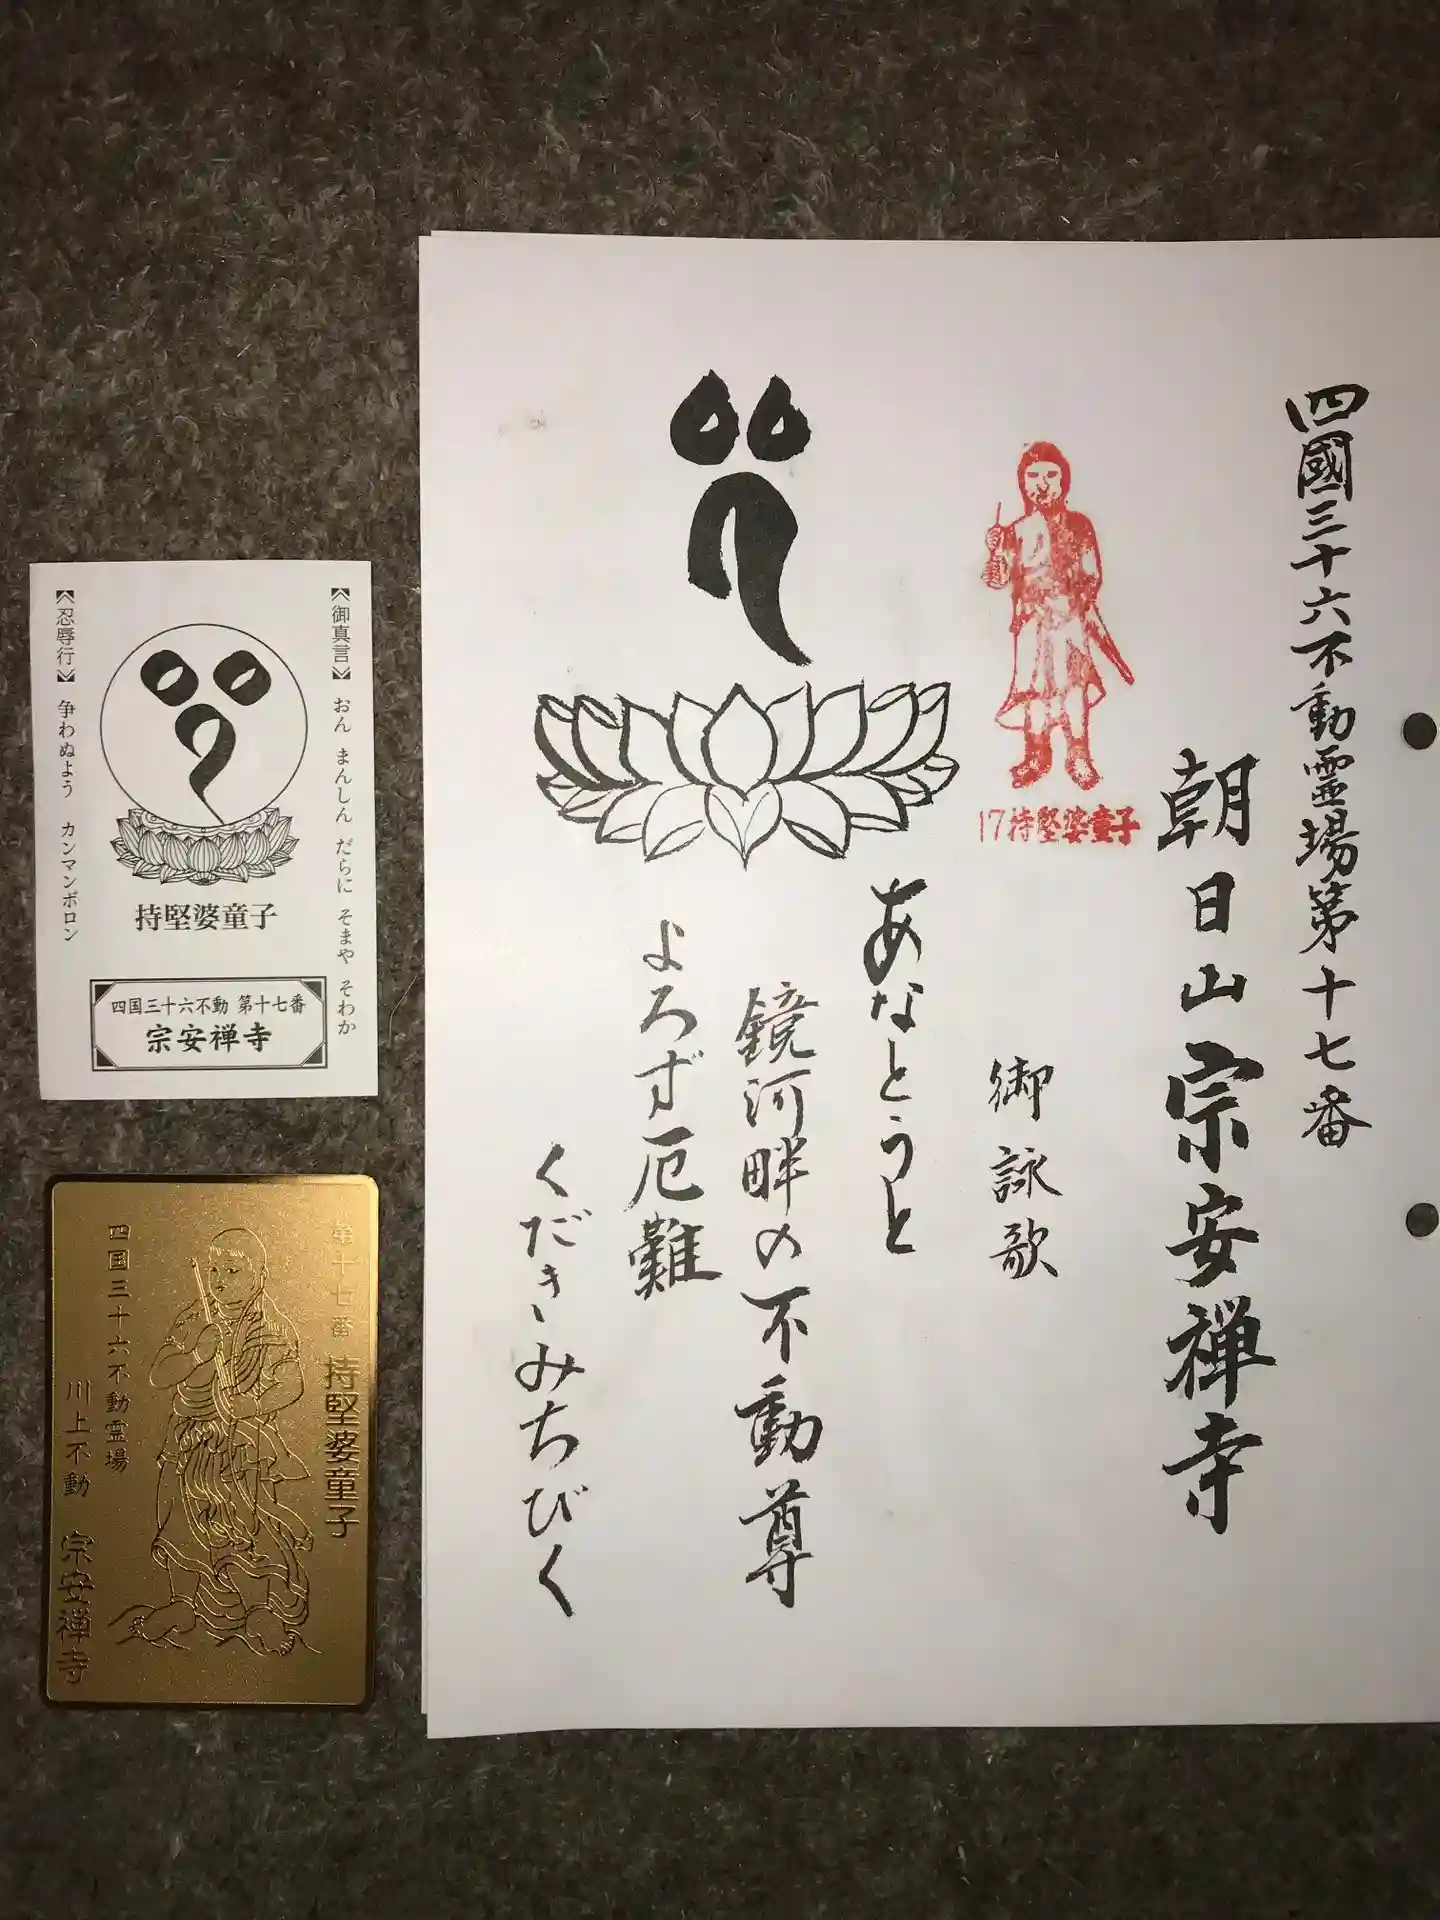 四國三十六不動霊場第十七番
朝日山宗安禅寺
17持堅婆童子
御詠歌
あなとうと
鏡河畔の不動尊
よろず厄難
くだきみちびく
《御真言》 おん まんしん だらに そまや そわか
《忍辱行》 争わぬよう カンマンボロン
持堅婆童子
四国三十六不動 第十七番
宗安禅寺
第十七番 持堅婆童子
四国三十六不動霊場
川上不動 宗安禅寺